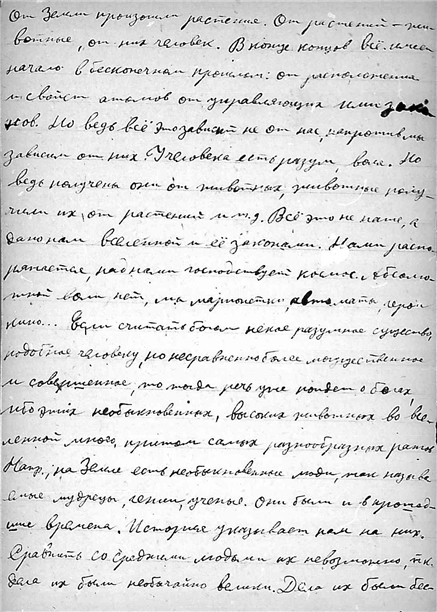 От Земли произошли растения. От растений — жи-
вотные, от них человек. В конце концов всё имеет
начало в бесконечном прошлом: от расположения
и свойст атомов от управляющих ими зако
нов. Но ведь всё это зависит не от нас, напротив мы
зависим от них. У человека есть разум, воля. Но
ведь получены они от животных, животные полу-
чили их от растений и т.д. Всё это не наше, а
дано нам вселенной и её законами. Нами распо-
ряжается, над нами господствует космос. Абсолю-
тной воли нет, мы марионетки, автоматы, герои
кино... Если считать богом некое разумное существо,
подобное человеку, но несравненно более могущественное
и совершенное, то тогда речь уже пойдет о богах,
ибо этих необыкновенных, высоких животных во все-
ленной много, притом самых разнообразных рангов
Напр., на Земле есть необыкновенные люди, так называ
емые мудрецы, гении, ученые. Они были и в прошед-
шие времена. История указывает нам на них.
Сравнить со средними людьми их невозможно т.к.
дела их были необычайно велики. Дела их были бес-